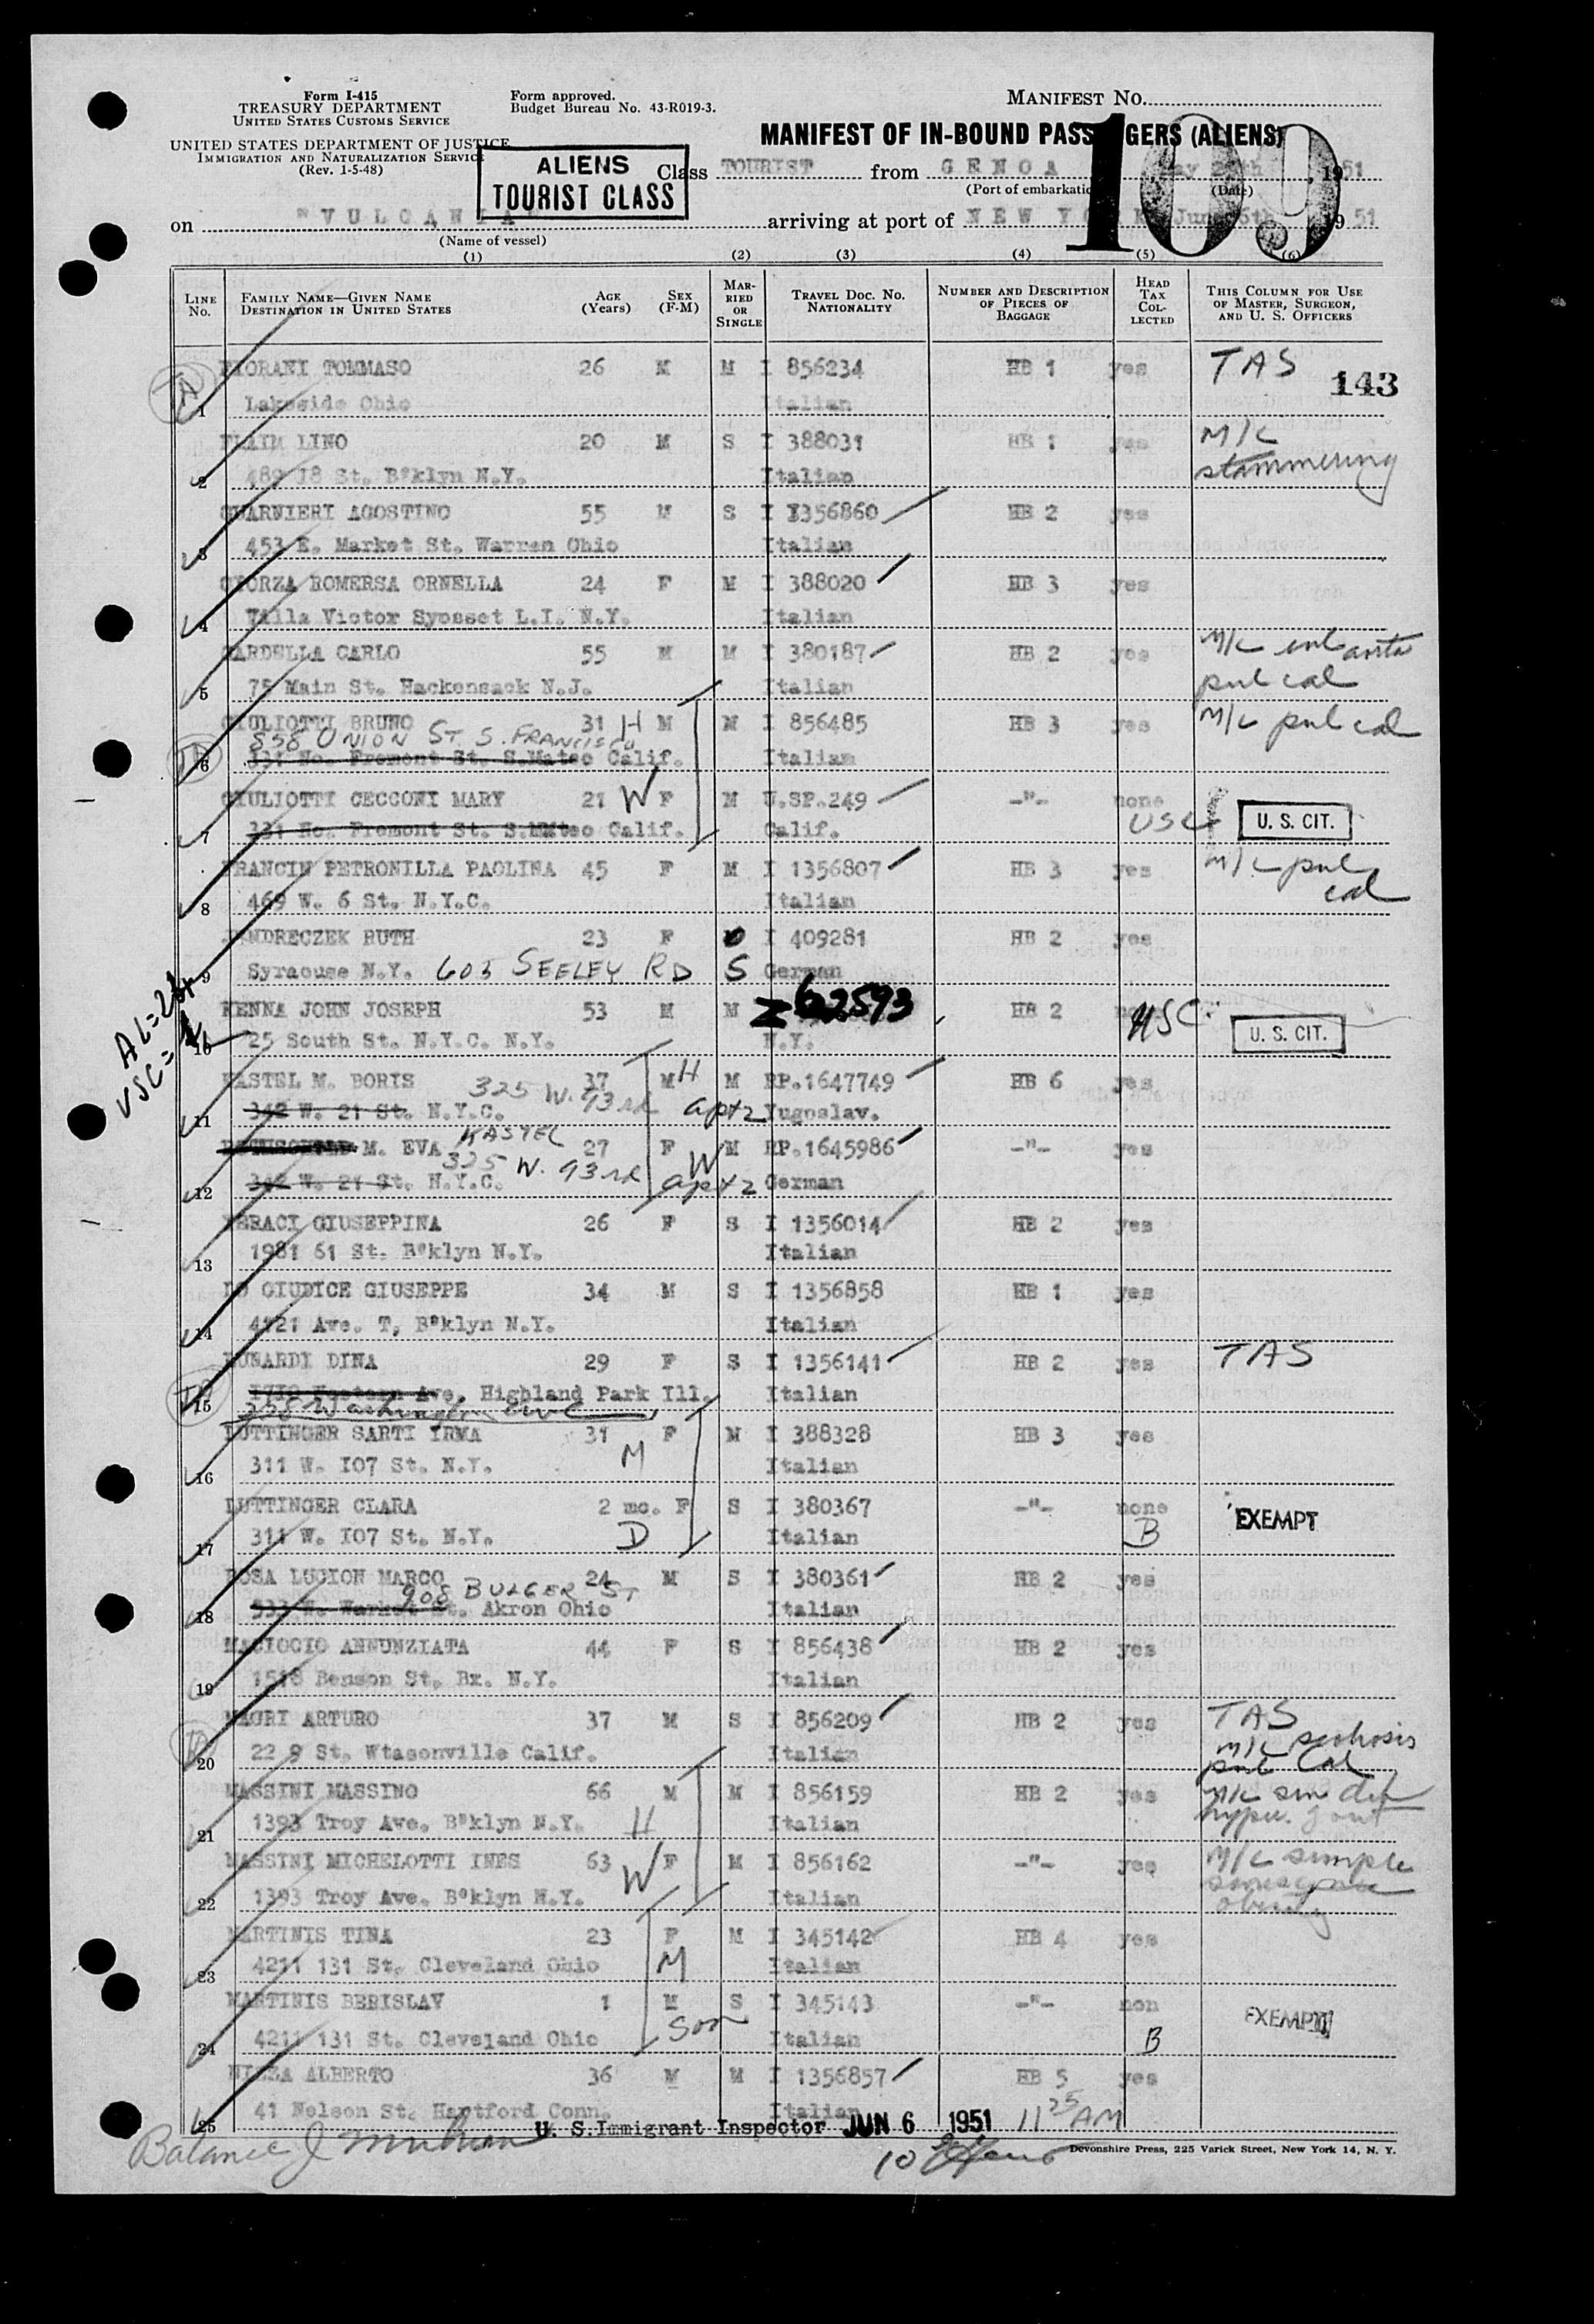 Form I-415
TREASURY DEPARTMENT
UNITED STATES CUSTOMS SERVICE
UNITED STATES DEPARTMENT OF JUSTICE
IMMIGRATION AND NATURALIZATION SERVICE
(Rev. 1-5-48)
Form approved.
Budget Bureau No. 43-R019-3.
MANIFEST NO.
MANIFEST OF IN-BOUND PASSENGERS (ALIENS)
109
ALIENS
TOURIST CLASS
Class TOURIST from GENOA 1951
(Port of embarkation) (Date)
on "VULCANIA" arriving at port of NEW YORK June 6th 1951
(Name of vessel)
(1) (2) (3) (4) (5) (6)
LINE No. FAMILY NAME—GIVEN NAME DESTINATION IN UNITED STATES AGE (Years) SEX (F-M) MARRIED OR SINGLE TRAVEL DOC. NO. NATIONALITY NUMBER AND DESCRIPTION OF PIECES OF BAGGAGE HEAD TAX COLLECTED THIS COLUMN FOR USE OF MASTER, SURGEON, AND U. S. OFFICERS
FIORANI TOMMASO 26 M M I 856234 HB 1 yes TAS
143
1 Lakeside Ohio Italian
FLAIM LINO 20 M S I 388031 HB 1 yes M/C stammering
2 489 18 St. B'klyn N.Y. Italian
GUARNIERI AGOSTINO 55 M S I 1356860 HB 2 yes
3 453 E. Market St. Warren Ohio Italian
GIORZA ROMERSA ORNELLA 24 F M I 388020 HB 3 yes
4 Villa Victor Syosset L.I. N.Y. Italian
GARDELLA CARLO 55 M M I 380187 HB 2 yes M/C
5 75 Main St. Hackensack N.J. Italian pul cal
GIULIOTTI BRUNO 31 H M M I 856485 HB 3 yes M/C pul cal
858 UNION ST. S. FRANCISCO
6 331 No. Fremont St. S.Mateo Calif. Italian
GIULIOTTI CECCONI MARY 21 W F M U.SP.249 -"- none
7 331 No. Fremont St. S.Mateo Calif. Calif. USC U. S. CIT.
FRANCIN PETRONILLA PAOLINA 45 F M I 1356807 HB 3 yes M/C pul cal
8 469 W. 6 St. N.Y.C. Italian
JENDRECZEK RUTH 23 F I 409281 HB 2 yes
9 Syracuse N.Y. 605 SEELEY RD S German
AL=24
USC=
KENNA JOHN JOSEPH 53 M M Z62593 HB 2 USC
10 25 South St. N.Y.C. N.Y. N.Y. U. S. CIT.
KASTEL M. BORIS 37 M H M RP.1647749 HB 6 yes
325 W. 93rd apt 2
11 342 W. 21 St. N.Y.C. Yugoslav.
KASTEL
M. EVA 27 F W M RP.1645986 -"- yes
325 W. 93rd apt 2
12 342 W. 21 St. N.Y.C. German
LERACI GIUSEPPINA 26 F S I 1356014 HB 2 yes
13 1981 61 St. B'klyn N.Y. Italian
LO GIUDICE GIUSEPPE 34 M S I 1356858 HB 1 yes
14 4121 Ave. T, B'klyn N.Y. Italian
LUNARDI DINA 29 F S I 1356141 HB 2 yes TAS
15 1710 Western Ave. Highland Park Ill. Italian
328 Washington Ave
LUTTINGER SARTI IRMA 31 M F M I 388328 HB 3 yes
16 311 W. I07 St. N.Y. Italian
LUTTINGER CLARA 2 mo. F S I 380367 -"- none EXEMPT
17 311 W. I07 St. N.Y. D Italian B
LOSA LUCION MARCO 24 M S I 380361 HB 2 yes
908 BULGER ST
18 533 W. Market St. Akron Ohio Italian
MACIOCIO ANNUNZIATA 44 F S I 856438 HB 2 yes
19 1518 Benson St. Bx. N.Y. Italian
MAGRI ARTURO 37 M S I 856209 HB 2 yes TAS
20 22 9 St. Wtasonville Calif. Italian M/C scoliosis pul cal
MASSINI MASSINO 66 M M I 856159 HB 2 yes M/C
21 1393 Troy Ave. B'klyn N.Y. H Italian
MASSINI MICHELOTTI INES 63 W F M I 856162 -"- yes M/C simple
22 1393 Troy Ave. B'klyn N.Y. Italian obesity
MARTINIS TINA 23 F M I 345142 HB 4 yes
23 4211 131 St. Cleveland Ohio M Italian
MARTINIS BERISLAV 1 M S I 345143 -"- non EXEMPT
24 4211 131 St. Cleveland Ohio Son Italian B
NIZZA ALBERTO 36 M M I 1356857 HB 5 yes
25 41 Nelson St. Hartford Conn. Italian
U. S. Immigrant Inspector JUN 6 1951 11 25 AM
Balance J
10
Devonshire Press, 225 Varick Street, New York 14, N. Y.